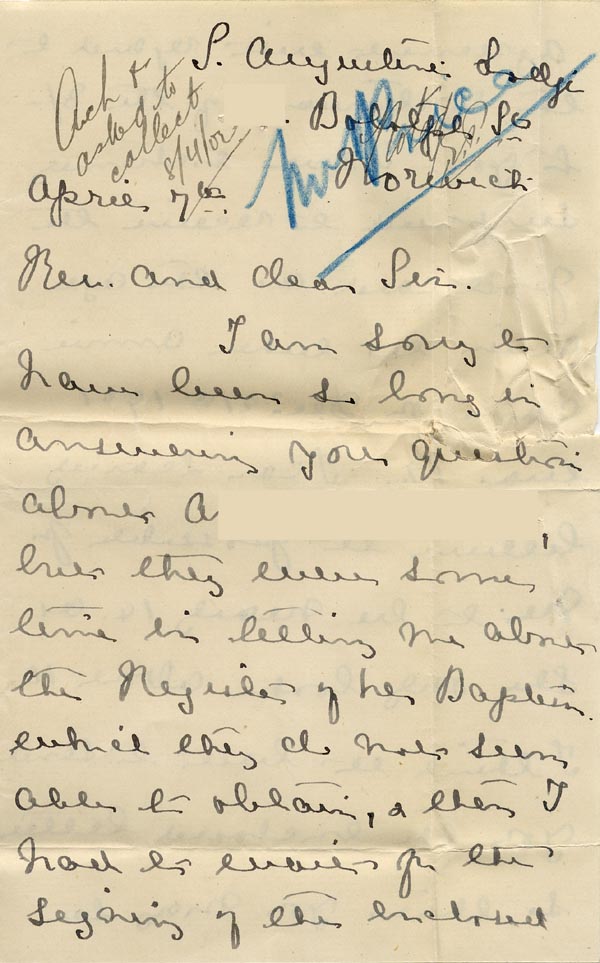 Ack &
asked to
collect
8/4/02
S. Augustine's Lodge
Norwich
April 7th.
Rev. and dear Sir.
I am sorry to
have been so long in
answering your question
about A
but they were some
time in letting me about
the Register of her Baptism
which they do not seem
able to obtain, & then I
had to wait for the
signing of the enclosed